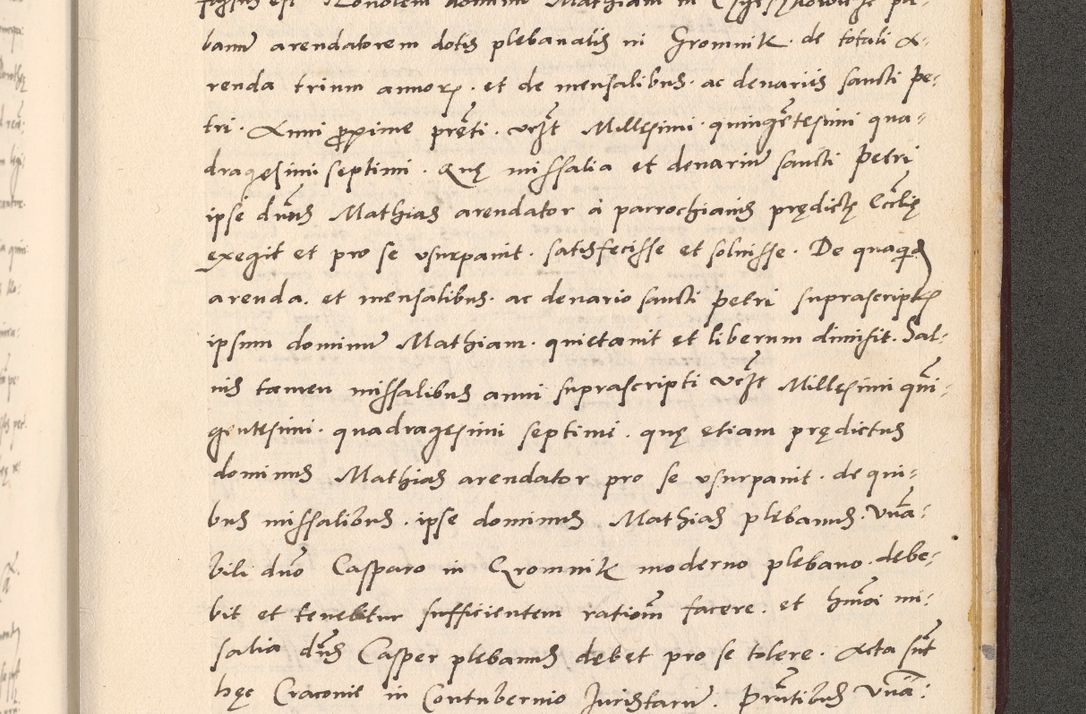 fassus est honorem dominum Mathiam in
banum arendatorem dotis plebanalis in Gromnik · de totali a-
renda trium annorum · et de mensalibus · ac denariis sancti pe-
tri · Anni proxime preteriti · videlicet Millesimi · quingentesimi qua-
dragesimi septimi · Quę missalia et denarium sancti Petri
ipse dominus Mathias arendator à parrochianis prędictę Ecclesię
exegit et pro se usurpavit · satisfecisse et solvisse · De qua quidem
arenda · et mensalibus · ac denario sancti petri suprascriptis
ipsum dominum Mathiam · quietavit et liberum dimisit · Sal-
vis tamen missalibus anni suprascripti videlicet Millesimi quin-
gentesimi · quadragesimi septimi · quę etiam prędictus
dominus Mathias arendator pro se usurpavit · de qui-
bus missalibus · ipse dominus Mathias plebanus · Vena-
bili dno Casparo in Gromnik moderno plebano · debe-
bit et tenebitur sufficientem rationem facere · et hmoi mi-
salia dnus Casper plebanus debet pro se tolere · Acta sunt
hęc Cracovie in Contubernio Juristarum · Presentibus Vena-